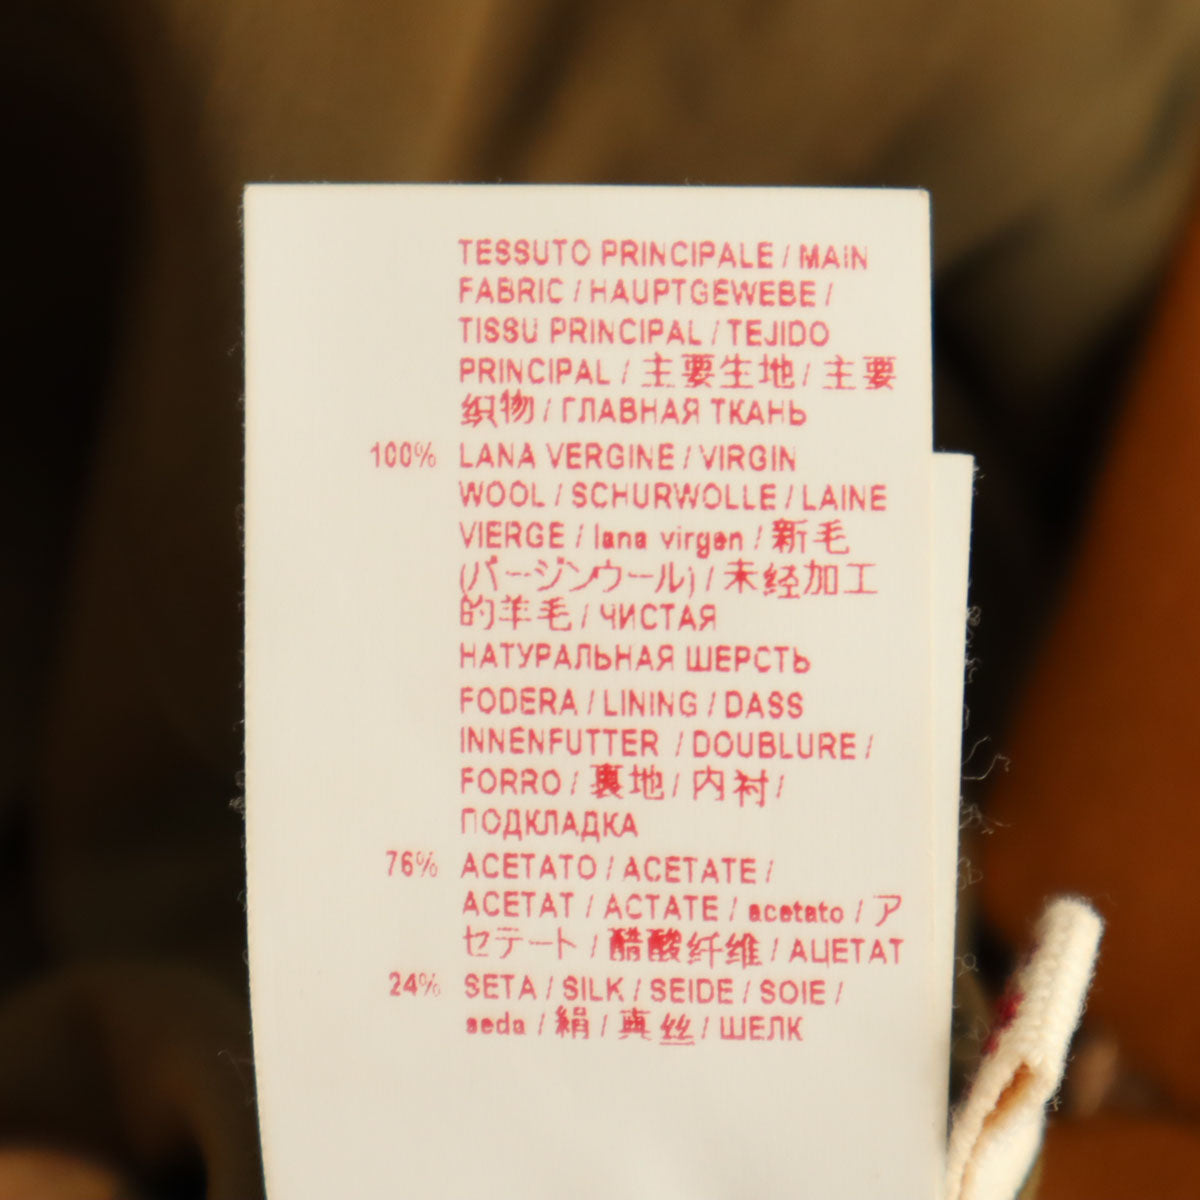 TESSUTO PRINCIPALE / MAIN
FABRIC / HAUPTGEWEBE /
TISSU PRINCIPAL / TEJIDO
PRINCIPAL / 主要生地 / 主要
织物 / ГЛАВНАЯ ТКАНЬ
100% LANA VERGINE / VIRGIN
WOOL / SCHURWOLLE / LAINE
VIERGE / lana virgen / 新毛
(バージンウール) / 未经加工
的羊毛 / ЧИСТАЯ
НАТУРАЛЬНАЯ ШЕРСТЬ
FODERA / LINING / DASS
INNENFUTTER / DOUBLURE /
FORRO / 裏地 / 内衬 /
ПОДКЛАДКА
76% ACETATO / ACETATE /
ACETAT / ACTATE / acetato / ア
セテート / 醋酸纤维 / АЦЕТАТ
24% SETA / SILK / SEIDE / SOIE /
seda / 絹 / 真丝 / ШЕЛК